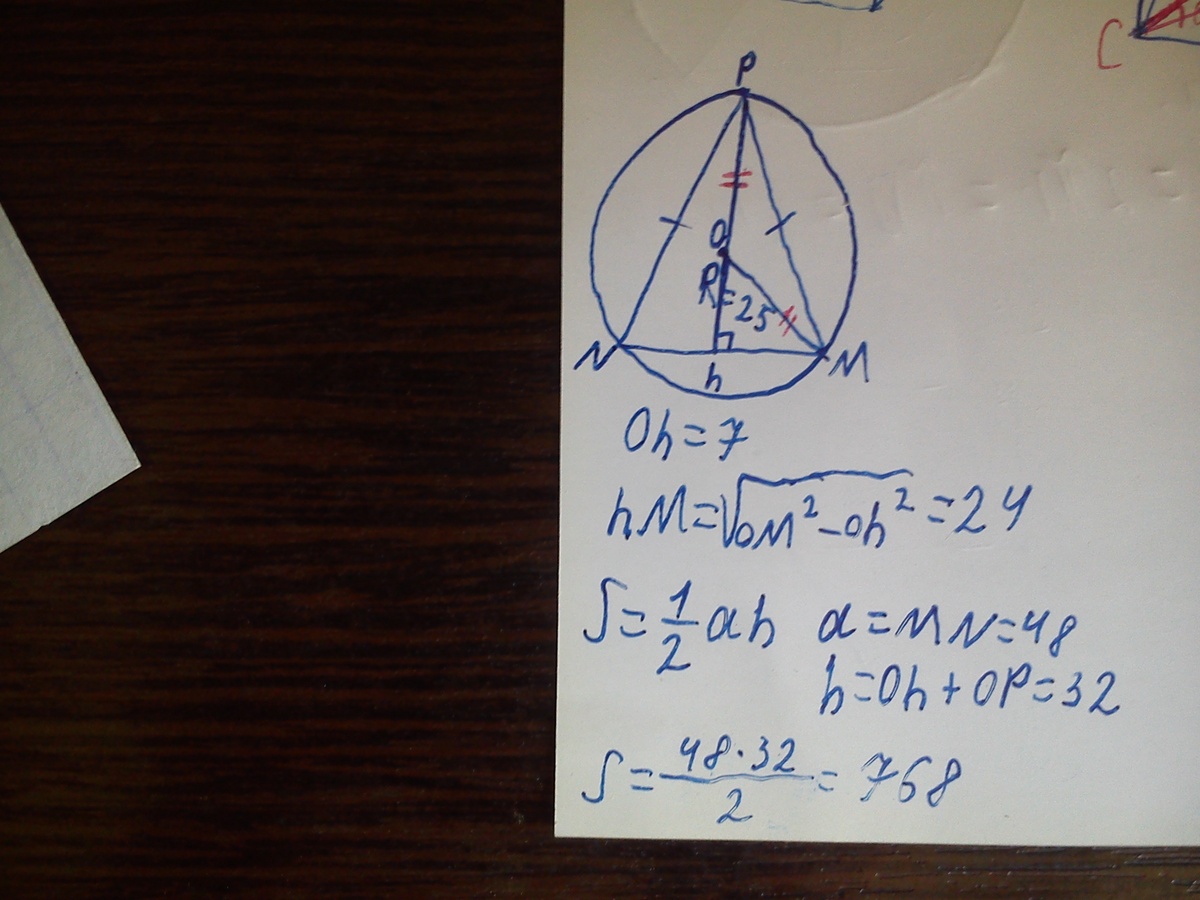 C
P
O
R=25
N
M
h
Oh=7
hM=√(OM²-Oh²)=24
S=1/2 ah a=MN=48
h=Oh+OP=32
S=48·32/2=768